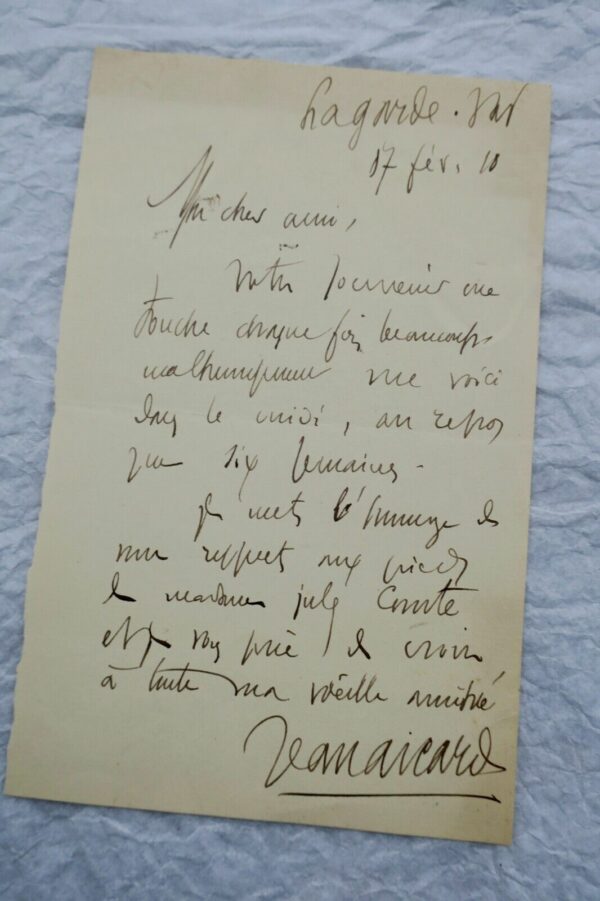 Lagarde. Var
17 fév. 10
Mon cher ami,
Votre souvenir me
touche chaque fois beaucoup.
malheureusement me voici
dans le midi, au repos
pour six semaines.
Je mets l'hommage de
mon respect aux pieds
de madame jules Comte
et je vous prie de croire
à toute ma vieille amitié
Jean Aicard